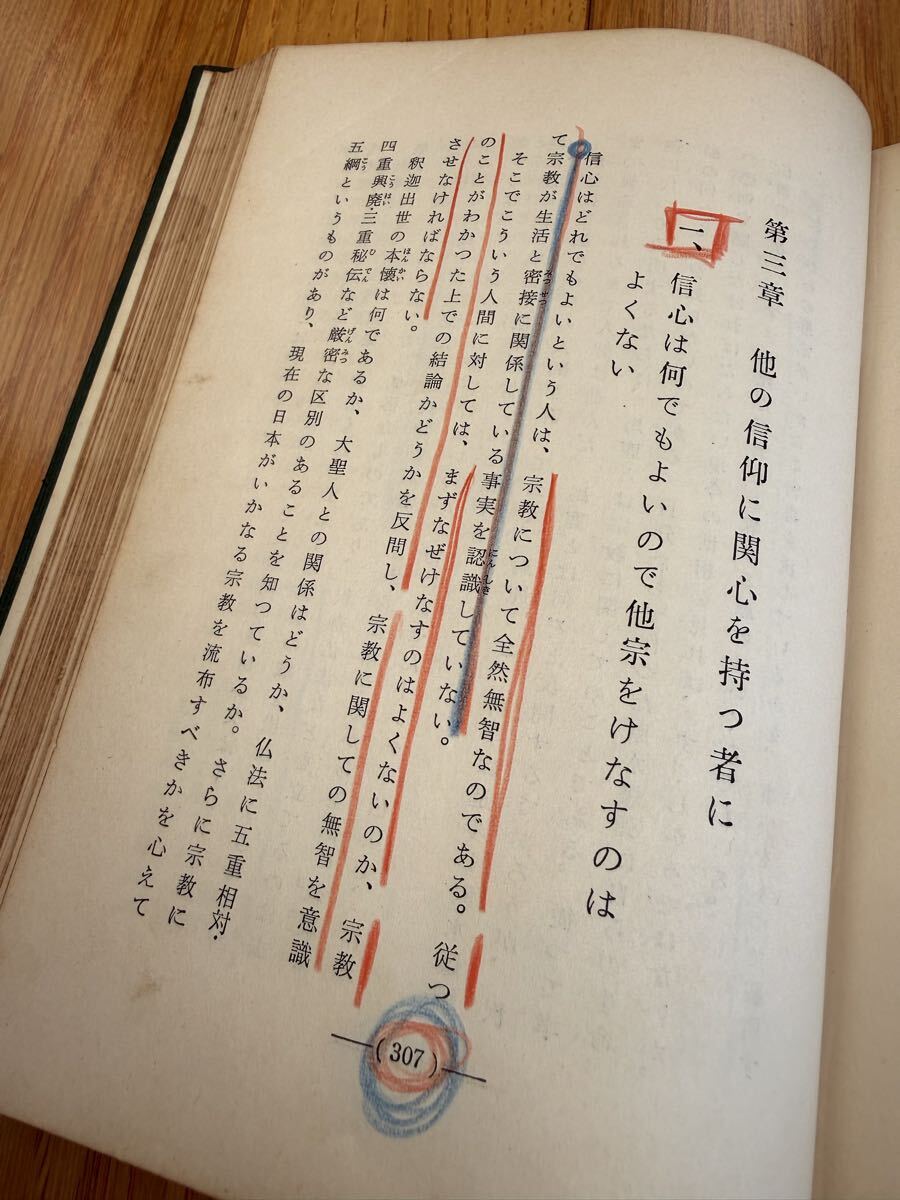 第三章 他の信仰に関心を持つ者に
一、信心は何でもよいので、他宗をけなすのは
よくない
信心はどれでもよいという人は、宗教について全然無智なのである。従つ
て宗教が生活と密接に関係している事実を認識していない。
そこでこういう人間に対しては、まずなぜけなすのはよくないのか、宗教
のことがわかつた上での結論かどうかを反問し、宗教に関しての無智を意識
させなければならない。
釈迦出世の本懐は何であるか、大聖人との関係はどうか、仏法に五重相対・
四重興廃・三重秘伝など厳密な区別のあることを知つているか。さらに宗教に
五綱というものがあり、現在の日本がいかなる宗教を流布すべきかを心えて
(307)